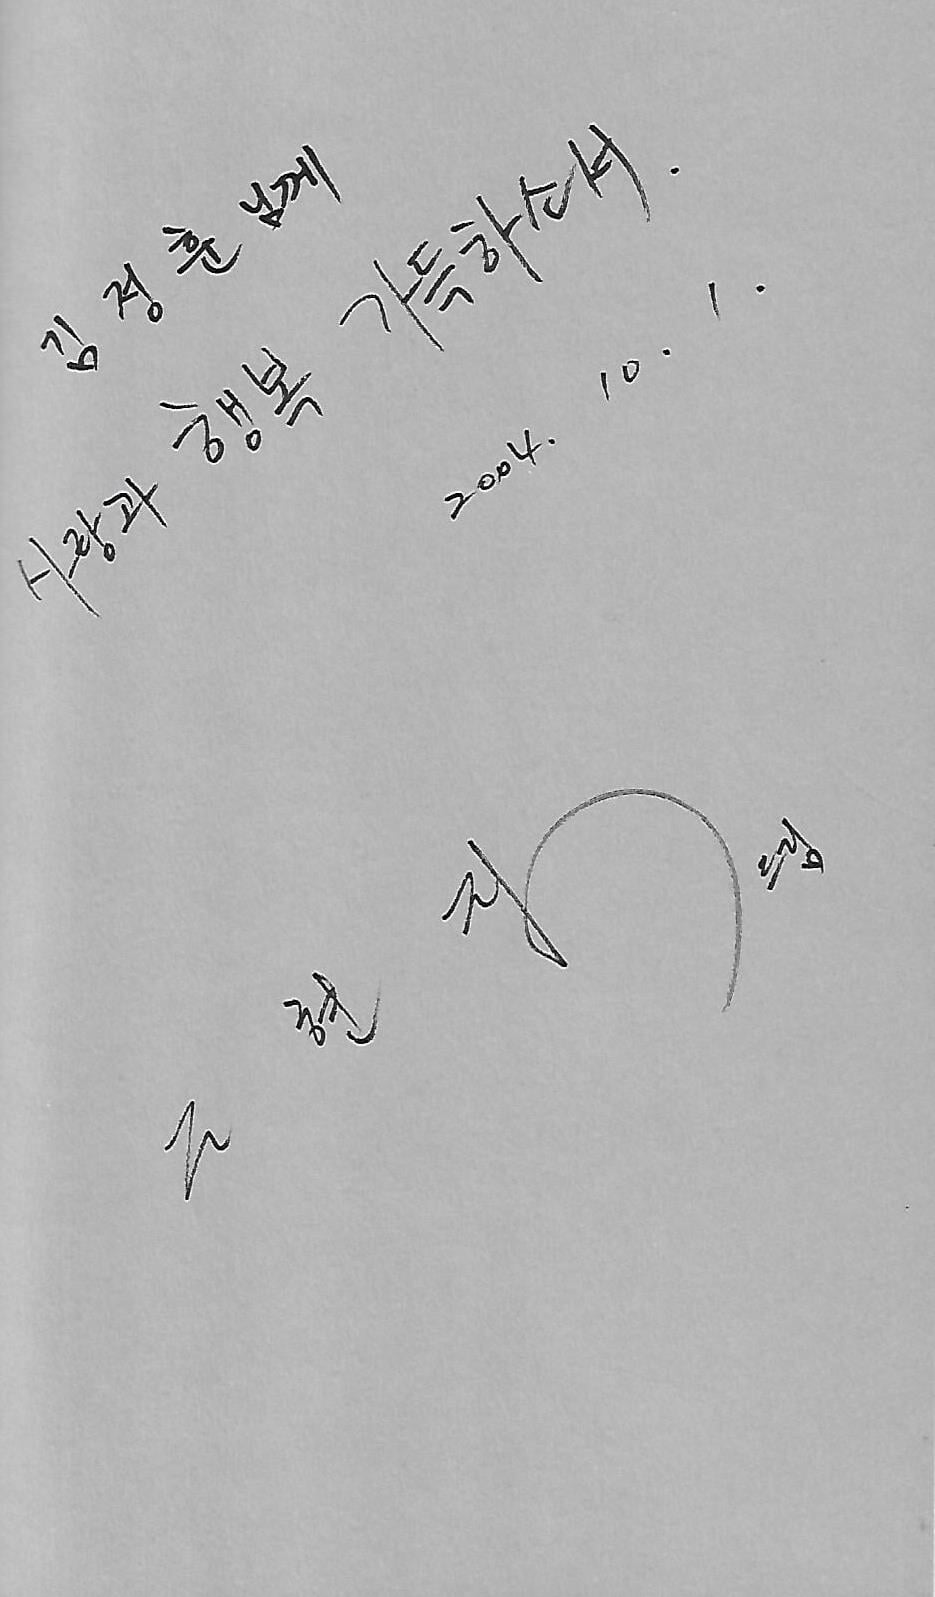 김정훈 님께
사랑과 행복 가득하소서.
2004. 10. 1.
드림